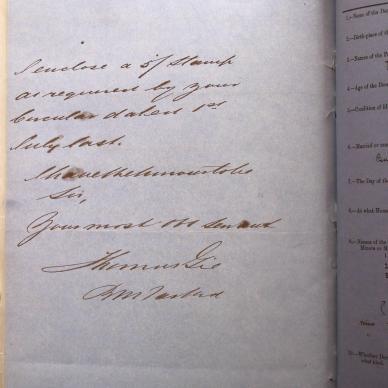 I enclose a 5/ Stamp
as required by your
Circular dated 1st
July last.
I have the honour to be
Sir,
Your most Obt Servant
Thomas
1.—Name of the
2.—Birth-place of the
3.—Names of the
4.—Age of the
5.—Condition of
6.—Married or
7.—The Day of
8.—At what
9.—Names of the
10.—Whether